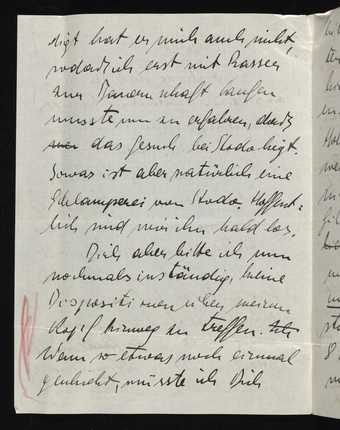 digt hat er mich auch nicht,
sodaß ich erst mit Rasser
zur Mannschaft laufen
musste um zu erfahren, dass
das Gesuch bei Kodo liegt.
Sowas ist aber natürlich eine
Schlamperei von Kodo. Hoffent-
lich sind wir ihn bald los.
Dich aber bitte ich nun
nochmals inständig, keine
Dispositionen über meinen
Kopf hinweg zu treffen.
Wenn so etwas noch einmal
geschieht, müsste ich Dich